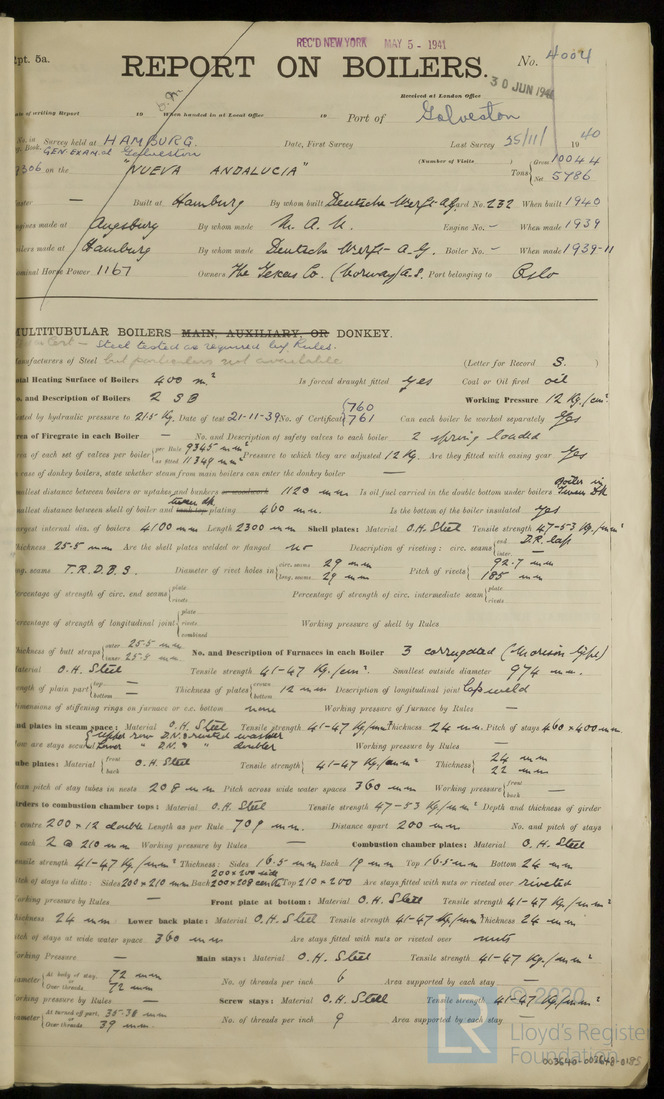 REC'D NEW YORK MAY 5 - 1941
Rpt. 5a. No. 4004
REPORT ON BOILERS.
30 JUN 194
Received at London Office
Date of writing Report 19 When handed in at Local Office 19 Port of Galveston
No. in Reg. Book. Survey held at HAMBURG. Date, First Survey Last Survey 25/11/ 1940
GEN. EXAM. at Galveston
(Number of Visits )
on the "NUEVA ANDALUCIA" Tons { Gross 10044 Net 5786
Master — Built at Hamburg By whom built Deutsche Werft A.G. Yard No. 232 When built 1940
Engines made at Augsburg By whom made M.A.N. Engine No. — When made 1939
Boilers made at Hamburg By whom made Deutsche Werft A-G. Boiler No. — When made 1939-11
Nominal Horse Power 1167 Owners The Texas Co. (Norway) A.S. Port belonging to Oslo
MULTITUBULAR BOILERS MAIN, AUXILIARY, OR DONKEY.
Steel tested as required by Rules.
Manufacturers of Steel but particulars not available (Letter for Record S. )
Total Heating Surface of Boilers 400 m.² Is forced draught fitted yes Coal or Oil fired oil
No. and Description of Boilers 2 SB Working Pressure 12 Kg./cm²
Tested by hydraulic pressure to 21.5 Kg. Date of test 21-11-39 No. of Certificate { 760 761 Can each boiler be worked separately Yes
Area of Firegrate in each Boiler — No. and Description of safety valves to each boiler 2 spring loaded
Area of each set of valves per boiler { per Rule 9345 mm² as fitted 11349 mm² Pressure to which they are adjusted 12 Kg. Are they fitted with easing gear Yes
In case of donkey boilers, state whether steam from main boilers can enter the donkey boiler —
Smallest distance between boilers or uptakes and bunkers or woodwork 1120 mm Is oil fuel carried in the double bottom under boilers Boiler in Tween Dk
Smallest distance between shell of boiler and tank top tween dk plating 460 mm. Is the bottom of the boiler insulated yes
Largest internal dia. of boilers 4100 mm Length 2300 mm Shell plates: Material O.H. Steel Tensile strength 47-53 Kg/mm²
Thickness 25.5 mm Are the shell plates welded or flanged no Description of riveting: circ. seams { end D.R. lap inter. —
long. seams T.R.D.B.S. Diameter of rivet holes in { circ. seams 29 mm long. seams 29 mm Pitch of rivets { 92.7 mm 185 mm
Percentage of strength of circ. end seams { plate rivets Percentage of strength of circ. intermediate seam { plate rivets
Percentage of strength of longitudinal joint { plate rivets combined Working pressure of shell by Rules
Thickness of butt straps { outer 25.5 mm inner 25.5 mm No. and Description of Furnaces in each Boiler 3 corrugated (Morison type)
Material O.H. Steel Tensile strength 41-47 Kg/cm². Smallest outside diameter 974 mm.
Length of plain part { top — bottom — Thickness of plates { crown bottom 12 mm Description of longitudinal joint lap weld
Dimensions of stiffening rings on furnace or c.c. bottom none Working pressure of furnace by Rules —
End plates in steam space: Material O.H. Steel Tensile strength 41-47 Kg/mm² Thickness 24 mm. Pitch of stays 460 × 400 mm.
How are stays secured { Upper row D.N. & riveted washer Lower " D.N. & " doubler Working pressure by Rules —
Tube plates: Material { front back O.H. Steel Tensile strength { 41-47 Kg/mm² Thickness { 24 mm 22 mm
Mean pitch of stay tubes in nests 208 mm Pitch across wide water spaces 360 mm Working pressure { front back —
Girders to combustion chamber tops: Material O.H. Steel Tensile strength 47-53 Kg/mm² Depth and thickness of girder
at centre 200 × 12 double Length as per Rule 709 mm. Distance apart 200 mm No. and pitch of stays
in each 2 @ 210 mm Working pressure by Rules — Combustion chamber plates: Material O.H. Steel
Tensile strength 41-47 Kg/mm² Thickness: Sides 16.5 mm Back 19 mm Top 16.5 mm Bottom 24 mm
Pitch of stays to ditto: Sides 200 × 210 mm Back 200×200 side 200×208 centre Top 210 × 200 Are stays fitted with nuts or riveted over riveted
Working pressure by Rules — Front plate at bottom: Material O.H. Steel Tensile strength 41-47 Kg/mm²
Thickness 24 mm Lower back plate: Material O.H. Steel Tensile strength 41-47 Kg/mm² Thickness 24 mm
Pitch of stays at wide water space 360 mm Are stays fitted with nuts or riveted over nuts
Working Pressure — Main stays: Material O.H. Steel Tensile strength 41-47 Kg./mm²
Diameter { At body of stay, 72 mm or Over threads 72 mm No. of threads per inch 6 Area supported by each stay —
Working pressure by Rules — Screw stays: Material O.H. Steel Tensile strength 41-47 Kg/mm²
Diameter { At turned off part, 35-38 mm or Over threads 39 mm. No. of threads per inch 9 Area supported by each stay —
LR © 2020
Lloyd's Register
Foundation
003640-003648-0185